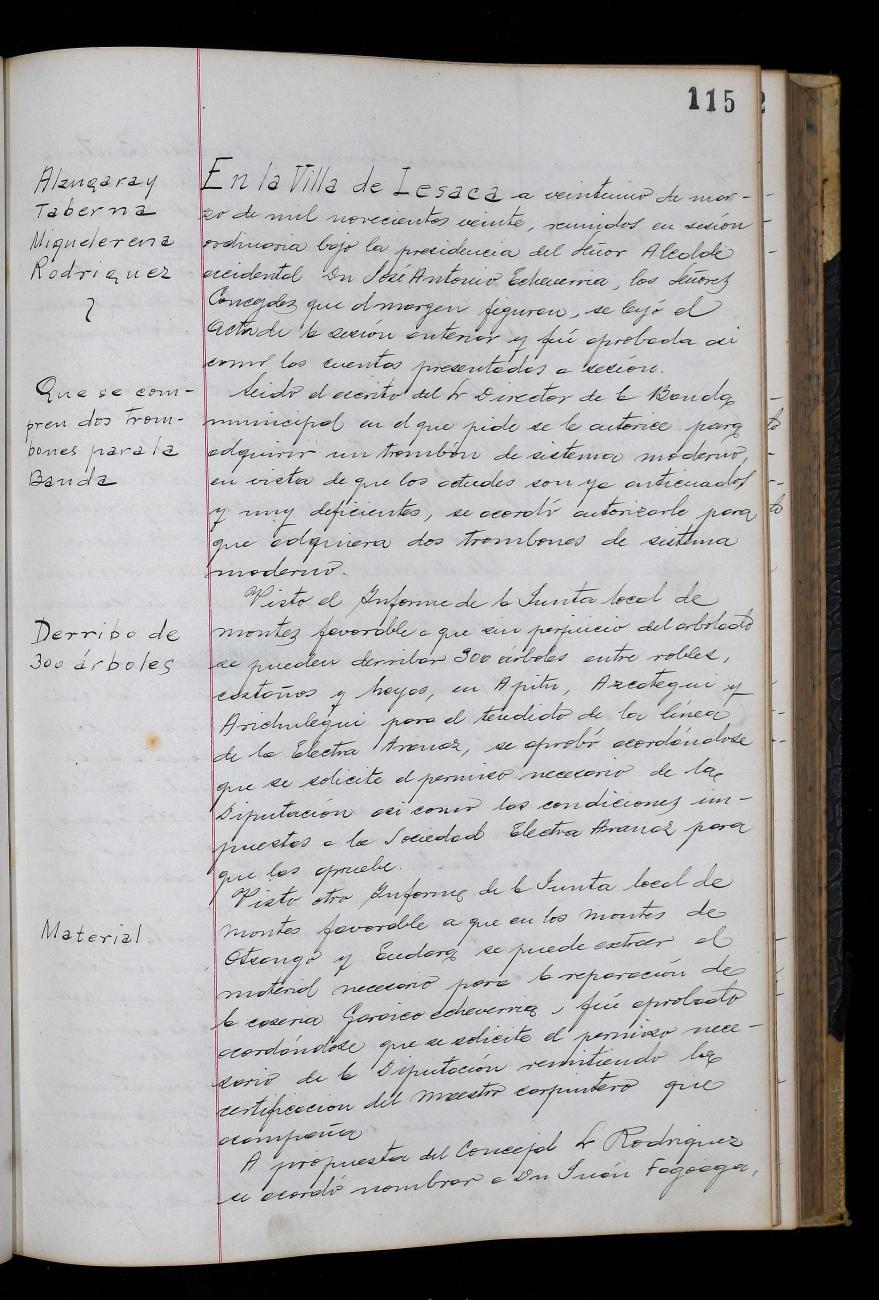 115
Alzugaray
Taberna
Miquelerena
Rodriguez
En la Villa de Lesaca a veintuno de mar-
zo de mil novecientos veinte, reunidos en sesión
ordinaria bajo la presidencia del Señor Alcalde
accidental Dn José Antonio Echeverria, los Señorez
Concejalez que al margen figuran, se leyó el
Acta de la sesión anterior y fué aprobada asi
como las cuentas presentadas a sesión.
Que se com-
pren dos trom-
bones para la
Banda
Leido el escrito del Sr Director de la Banda
municipal en el que pide se le autorice para
adquirir un trombón de sistema moderno,
en vista de que los actuales son ya anticuados
y muy deficientes, se acordó autorizarle para
que adquiera dos trombones de sistema
moderno.
Derribo de
300 árboles
Visto el Informe de la Junta local de
montez favorable a que sin perjuicio del arbolado
se pueden derribar 300 árboles entre robles,
castaños y hayas, en Apitu, Azcategui y
Arichulegui para el tendido de la línea
de la Electra Aranaz, se aprobó acordándose
que se solicite el permiso necesario de la
Diputación asi como las condiciones im-
puestas a la Sociedad Electra Aranaz para
que las apruebe.
Material
Visto otro Informe de la Junta local de
montes favorable a que en los montes de
Otsango y Eudara se puede extraer el
material necesario para la reparación de
la caseria Garaicoecheverria, fué aprobado
acordándose que se solicite el permiso nece-
sario de la Diputación remitiendo la
certificacion del maestro carpintero que
acompaña
A propuesta del Concejal Sr Rodriguez
se acordó nombrar a Dn Juán Fagoaga,